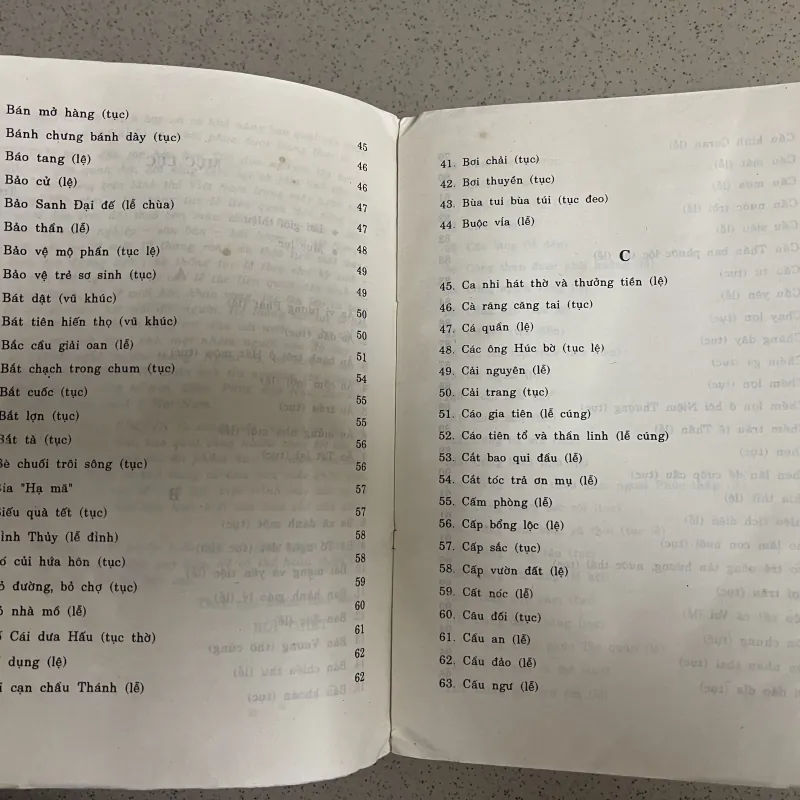 Bán mở hàng (tục) 45
Bánh chưng bánh dày (tục) 46
Báo tang (lệ) 46
Bảo cử (lệ) 47
Bảo Sanh Đại đế (lễ chùa) 47
Bảo thần (lễ) 48
Bảo vệ mộ phần (tục lệ) 49
Bảo vệ trẻ sơ sinh (tục) 49
Bát dật (vũ khúc) 50
Bát tiên hiến thọ (vũ khúc) 50
Bắc cầu giải oan (lễ) 51
Bắt chạch trong chum (tục) 54
Bắt cuốc (tục) 55
Bắt lợn (tục) 55
Bắt tà (tục) 56
Bè chuối trôi sông (tục) 56
Bia "Hạ mã" 57
Biếu quà tết (tục) 57
Bình Thủy (lễ đình) 58
củi hứa hôn (tục) 58
đường, bỏ chợ (tục) 59
nhà mồ (lễ) 60
Cái dưa Hấu (tục thờ) 61
dụng (lệ) 62
cạn chầu Thánh (lễ) 62
41. Bơi chải (tục)
42. Bơi thuyền (tục)
43. Bùa tui bùa túi (tục đeo)
44. Buộc vía (lễ)
C
45. Ca nhi hát thờ và thưởng tiền (lệ)
46. Cà răng căng tai (tục)
47. Cá quấn (lệ)
48. Các ông Húc bờ (tục lệ)
49. Cải nguyên (lễ)
50. Cải trang (tục)
51. Cáo gia tiên (lễ cúng)
52. Cáo tiên tổ và thần linh (lễ cúng)
53. Cắt bao qui đầu (lễ)
54. Cắt tóc trả ơn mụ (lễ)
55. Cấm phòng (lễ)
56. Cấp bổng lộc (lệ)
57. Cấp sắc (tục)
58. Cấp vườn đất (lệ)
59. Cất nóc (lễ)
60. Câu đối (tục)
61. Cầu an (lễ)
62. Cầu đảo (lễ)
63. Cầu ngư (lễ)